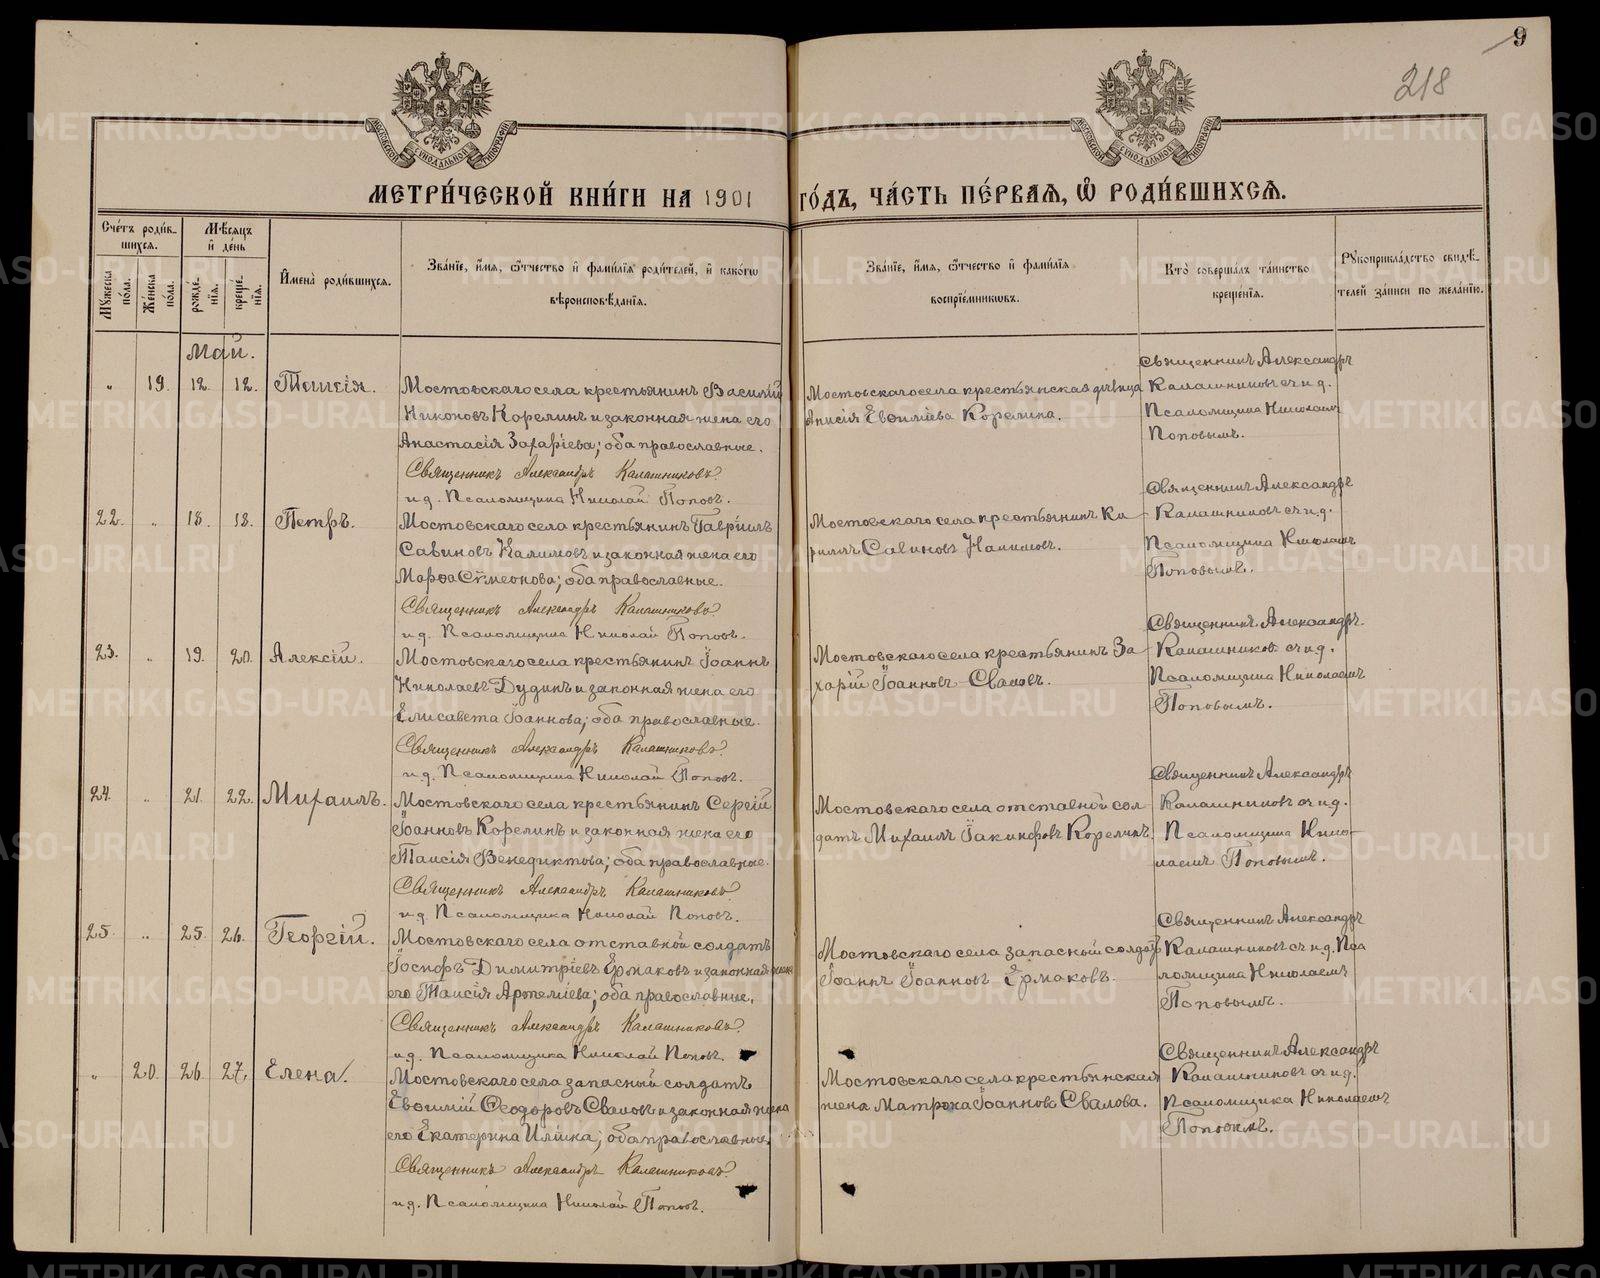 9
218
МОСКОВСКОЙ СѴНОДАЛЬНОЙ ТИПОГРАФІИ
МОСКОВСКОЙ СѴНОДАЛЬНОЙ ТИПОГРАФІИ
МЕТРИ́ЧЕСКОЙ КНИ́ГИ НА 1901 ГО́ДЪ, ЧА́СТЬ ПЕ́РВАѦ, Ѡ҆ РОДИ́ВШИХСѦ.
Сче́тъ роди́в-
шихсѧ.
Мꙋ́жеска
по́ла.
Же́нска
по́ла.
Мѣ́сѧцъ
и҆ де́нь
рожде-
нїѧ.
креще́-
нїѧ.
И҆мена̀ роди́вшихсѧ.
Зва́нїе, и҆́мѧ, ѻ҆́тчество и҆ фами́лїѧ роди́телей, и҆ како́гѡ
вѣроисповѣ́данїѧ.
Зва́нїе, и҆́мѧ, ѻ҆́тчество и҆ фами́лїѧ
воспрїе́мникѡвъ.
Кто̀ соверша́лъ та́инство
креще́нїѧ.
Рꙋкоприкла́дство свидѣ́-
телей за́писи по жела́нїю.
Май.
" 19. 12. 12. Таисія.
Мостовскаго села крестьянинъ Василій
Никоновъ Корелинъ и законная жена его
Анастасія Захаріева; оба православные.
Священникъ Александръ Калашниковъ
и.д. Псаломщика Николай Поповъ.
Мостовскаго села крестьянская дѣвица
Анисія Евѳиміева Корелина.
Священникъ Александръ
Калашниковъ съ и.д.
Псаломщика Николаемъ
Поповымъ.
22. " 18. 18. Петръ.
Мостовскаго села крестьянинъ Гавріилъ
Савиновъ Налимовъ и законная жена его
Марѳа Сѵмеонова; оба православные.
Священникъ Александръ Калашниковъ
и.д. Псаломщика Николай Поповъ.
Мостовскаго села крестьянинъ Ки-
риллъ Савиновъ Налимовъ.
Священникъ Александръ
Калашниковъ съ и.д.
Псаломщика Николаемъ
Поповымъ.
23. " 19. 20. Алексій.
Мостовскаго села крестьянинъ Іоаннъ
Николаевъ Дудинъ и законная жена его
Елисавета Іоаннова; оба православные.
Священникъ Александръ Калашниковъ
и.д. Псаломщика Николай Поповъ.
Мостовскаго села крестьянинъ За-
харій Іоанновъ Сваловъ.
Священникъ Александръ
Калашниковъ съ и.д.
Псаломщика Николаемъ
Поповымъ.
24. " 21. 22. Михаилъ.
Мостовскаго села крестьянинъ Сергій
Іоанновъ Корелинъ и законная жена его
Таисія Венедиктова; оба православные.
Священникъ Александръ Калашниковъ
и.д. Псаломщика Николай Поповъ.
Мостовскаго села отставной сол-
датъ Михаилъ Іакинфовъ Корелинъ.
Священникъ Александръ
Калашниковъ съ и.д.
Псаломщика Нико-
лаемъ Поповымъ.
25. " 25. 26. Георгій.
Мостовскаго села отставной солдатъ
Іосифъ Димитріевъ Ермаковъ и законная жена
его Таисія Артеміева; оба православные.
Священникъ Александръ Калашниковъ
и.д. Псаломщика Николай Поповъ.
Мостовскаго села запасный солдатъ
Іоаннъ Іоанновъ Ермаковъ.
Священникъ Александръ
Калашниковъ съ и.д. Пса
ломщика Николаемъ
Поповымъ.
" 20. 26. 27. Елена.
Мостовскаго села запасный солдатъ
Евѳимій Ѳеодоровъ Сваловъ и законная жена
его Екатерина Иліина; оба православные.
Священникъ Александръ Калашниковъ
и.д. Псаломщика Николай Поповъ.
Мостовскаго села крестьянская
жена Матрона Іоаннова Свалова.
Священникъ Александръ
Калашниковъ съ и.д.
Псаломщика Николаемъ
Поповымъ.
METRIKI.GASO-URAL.RU